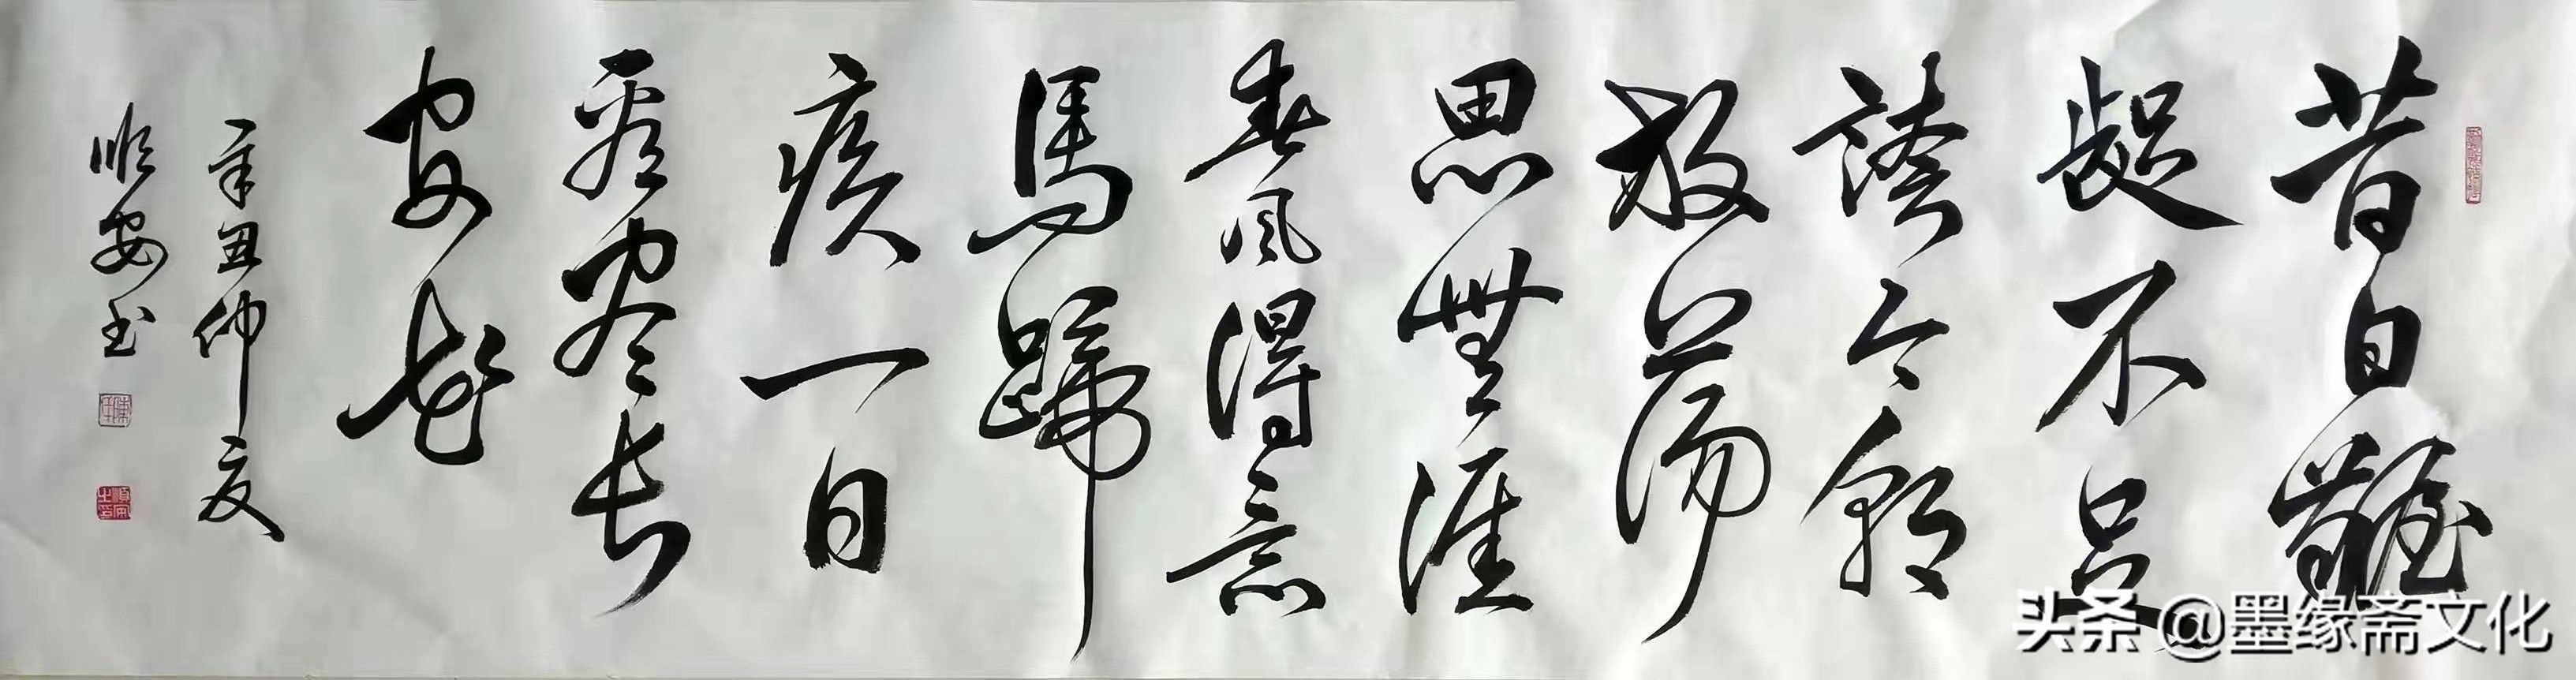 昔日齷
齪不足
誇今朝
放蕩
思無涯
春風得意
馬蹄
疾一日
看盡長
安花
辛丑仲夏
順安书
順安之印
头条 @墨缘斋文化